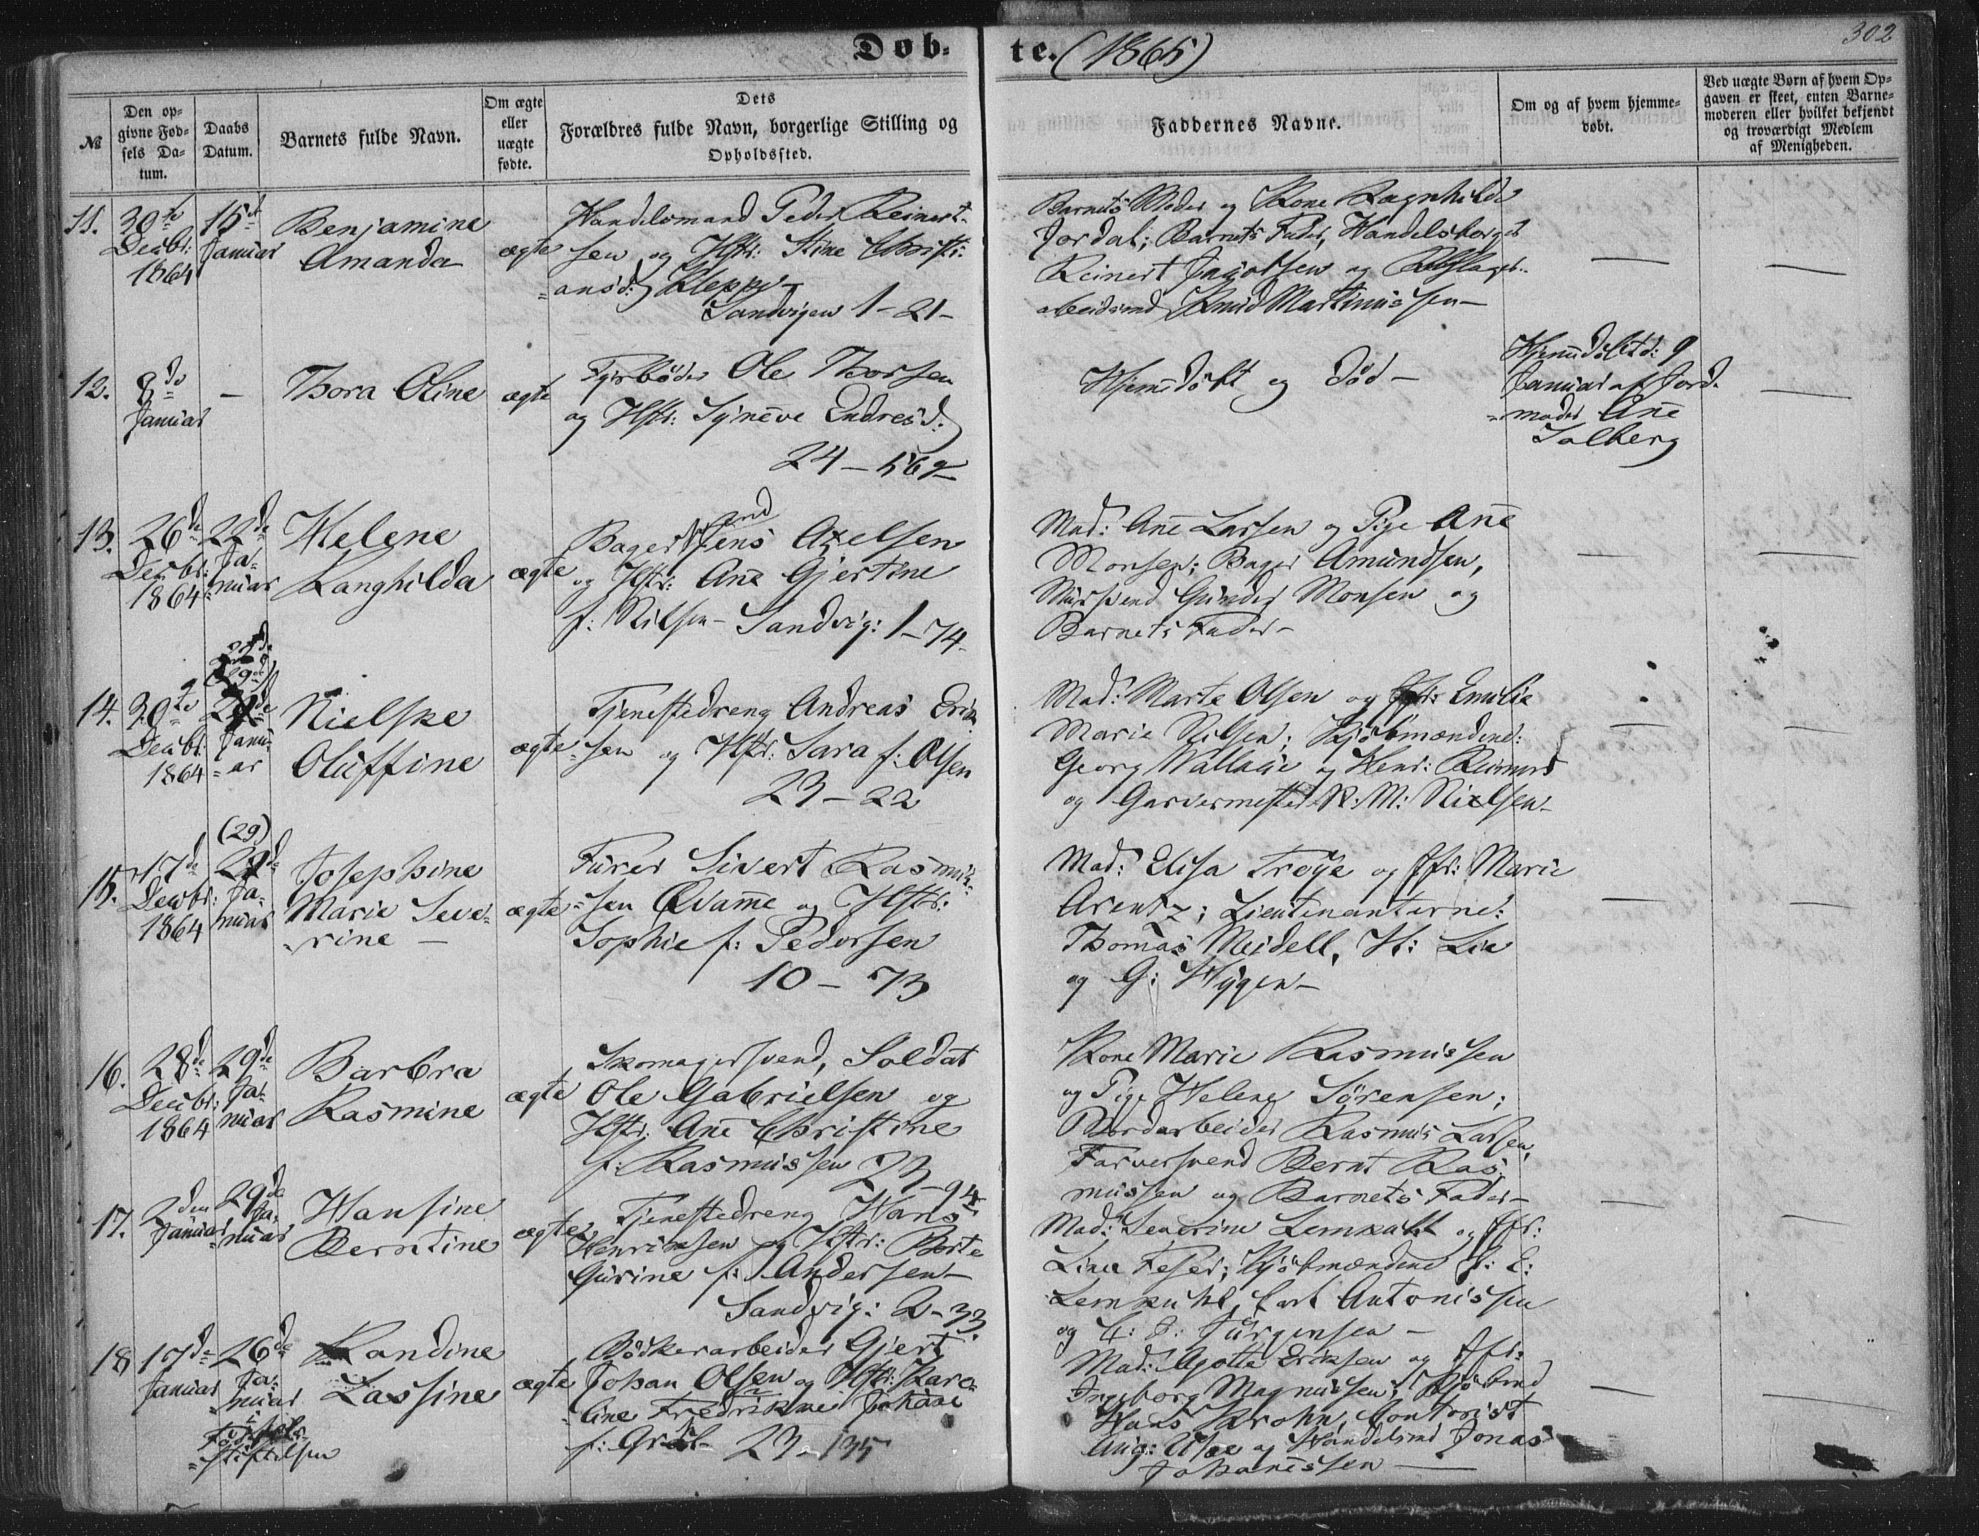 302
Døb- te. (1865)
№
Den opgivne Fødsels Datum.
Daabs Datum.
Barnets fulde Navn.
Om ægte eller uægte fødte.
Dets Forældres fulde Navn, borgerlige Stilling og Opholdssted.
Faddernes Navne.
Om og af hvem hjemmedøbt.
Ved uægte Børn af hvem Opgaven er skeet, enten Barnemoderen eller hvilket bekjendt og troværdigt Medlem af Menigheden.
11. 30te Decbr: 1864
15de Januar
Benjamine
Amanda
ægte
Handelsmand Peder Reinert-
sen og Hstr: Stine Christi-
=ansd: Klepp,
Sandvigen 1-21-
Barnets Moder og Kone Ragnhilde
Jordal; Barnets Fader, Handelsborger
Reinert Jacobsen og
arbeidsmd Knud Martinussen-
12. 8de Januar
-
Thora Oline
ægte
Fyrbøder Ole Thorsen
og Hstr: Syneve Endresd:
24-562
Hjemdøbt og død-
Hjemdøbt d: 9
Januar af Jord-
=moder Ane
Solberg
13. 26de Decbr: 1864
22de Ja-
nuar
Helene
Ranghilda
ægte
Bagersvend Jens Axelsen
og Hstr: Ane Gjertine
f: Nilsen- Sandvig: 1-74-
Mad: Ane Larsen og Pige Ane
Monsen; Bager Amundsen,
Mursvend Gunder Monsen og
Barnets Fader-
14. 30te Decbr: 1864
(29de)
Janu-
=ar
Nielske
Oluffine
ægte
Tjenestedreng Andreas Erik
=sen og Hstr: Sara f: Olsen
23-22
Mad: Marte Olsen og Jfr: Emilie
Marie Nilsen; Kjøbmændene:
Georg Wallace og Henr: Reimers
og Garvermester N: M: Nielsen-
15. 17de Decbr: 1864
(29)
29de Ja-
nuar
Josephine
Marie Seve-
=rine-
ægte
Furer Sivert Rasmus-
=sen Qvame og Hstr:
Sophie f: Pedersen
10-73
Mad: Elisa Troye og Jfr: Marie
Arentz; Lieutenanterne:
Thomas Meidell, H: Lie
og G: Hygen-
16. 28de Decbr: 1864
29de Ja-
nuar
Barbra
Rasmine
ægte
Skomagersvend, Soldat
Ole Gabrielsen og
Hstr: Ane Christine
f: Rasmussen 23-94
Kone Marie Rasmussen
og Pige Helene Sørensen;
Jordarbeider Rasmus Larsen,
Farversvend Bernt Ras-
mussen og Barnets Fader-
17. 2den Januar
29de Ja-
nuar
Hansine
Berntine
ægte
Tjenestedreng Hans
Henriksen og Hstr: Berte
Gurine f: Andersen-
Sandvig: 2-33.
Mad: Severine Lemkuhl og Jfr:
Line Feser; Kjøbmændene J: E:
Lemkuhl, Carl Antonissen
og C: J: Jürgensen-
18. 17de Januar
26de Ja-
nuar
Fødsels-
=stiftelsen
Randine
Lassine
ægte
Bødkerarbeider Gjert
Johan Olsen og Hstr: Kare-
=line Fredrikke Johane
f: 23-135
Mad: Agotte Eriksen og Jfr:
Ingeborg Magnussen; Kjøbmd
Hans Krohn, Contorist
Aug: og Handelsmd Jonas
Johannessen-